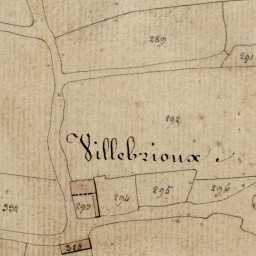 289
291
292
Villebrioux
295
296
294
293